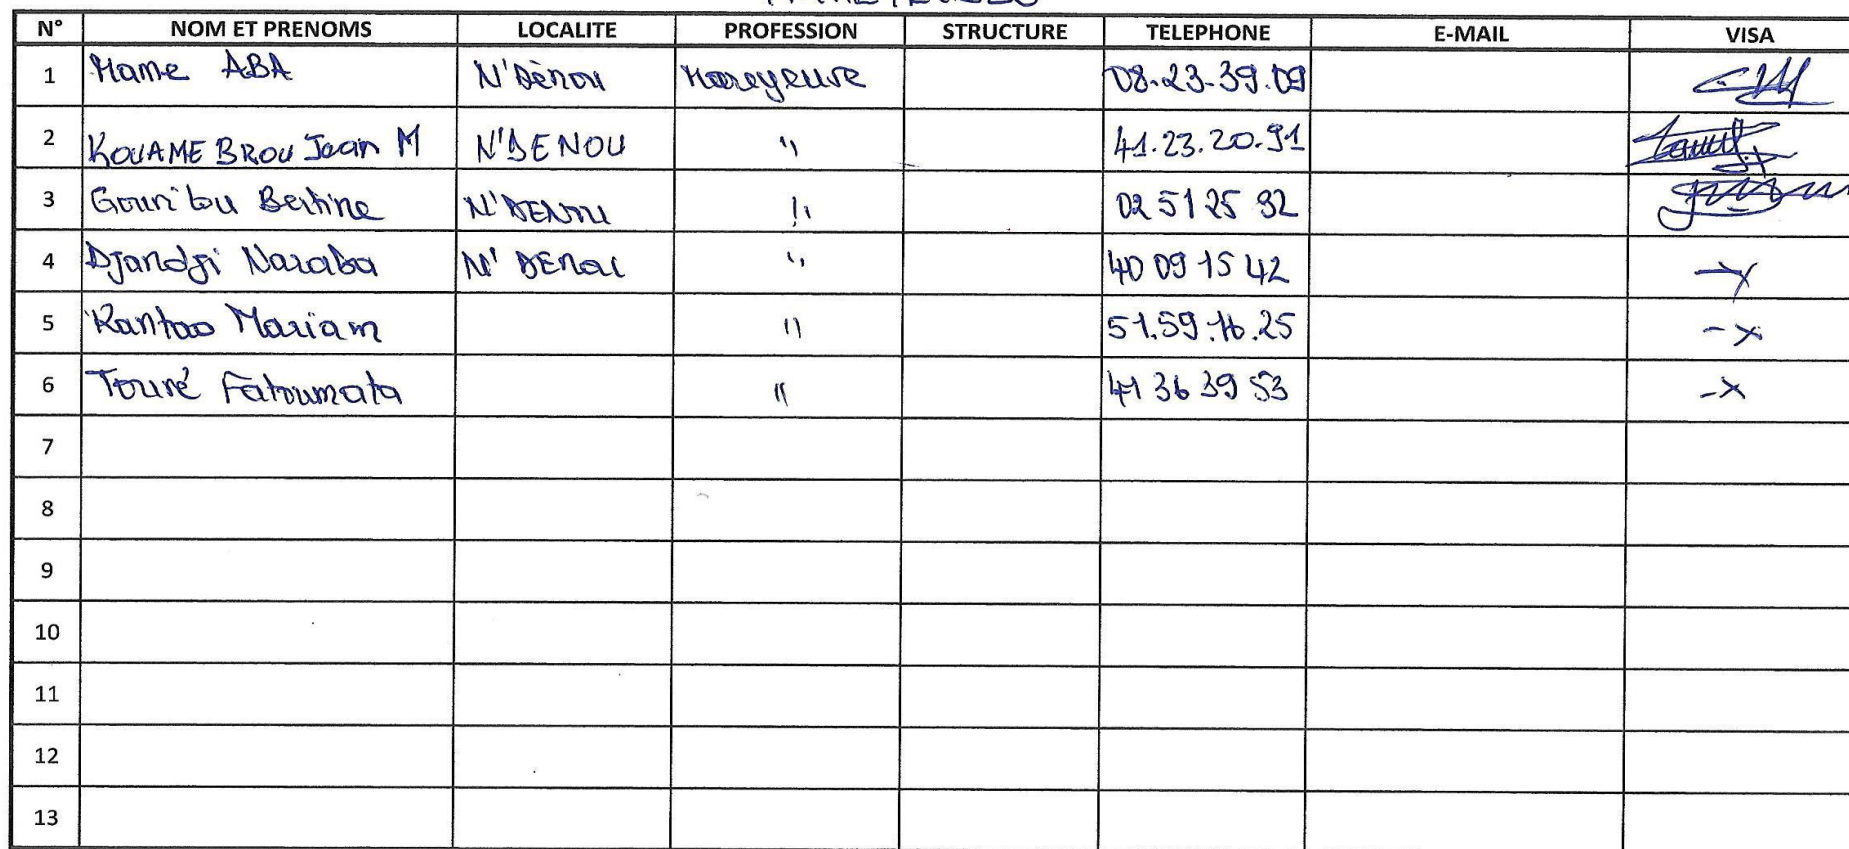 N° NOM ET PRENOMS LOCALITE PROFESSION STRUCTURE TELEPHONE E-MAIL VISA
1 Mame ABA N'Dènou Mareyeuse 08.23.39.09
2 KOUAME BROU Jean M N'DENOU " 41.23.20.91
3 Gouribu Bertine N'DENOU " 02 51 25 92
4 Djandji Naraba N'DENOU " 40 09 15 42
5 Mariam " 51.59.16.25
6 Touré Fatoumata " 41 36 39 53
7
8
9
10
11
12
13